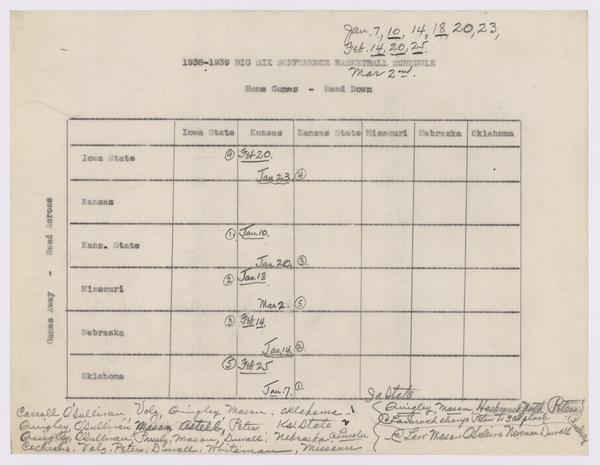 Jan. 7, 10, 14, 18, 20, 23,
Feb. 14, 20, 25.
1938-1939 BIG SIX CONFERENCE BASKETBALL SCHEDULE
Mar 2nd.
Home Games - Read Down
Games Away - Read Across
Iowa State Kansas Kansas State Missouri Nebraska Oklahoma
Iowa State ④ Feb 20.
Jan 23. ④
Kansas
Kans. State ① Jan 10.
Jan 20. ③
Missouri ② Jan 18
Mar 2. ⑤
Nebraska ③ Feb 14.
Jan. 14. ②
Oklahoma ⑤ Feb 25
Jan. 7. ①
Ia State
Carroll O'Sullivan, Volz, Quigley Mason. Oklahoma 1
Quigley, O'Sullivan, Mason Astell, Peters Ks. State 2
Quigley, O'Sullivan Presly, Mason, Duvall, Nebraska @ Lincoln
Cochrane, Volz, Peters, Duvall, Whiteman, Missouri
Quigley, Mason, Peters
@ Law Mason O'Sullivan Newman Duvall